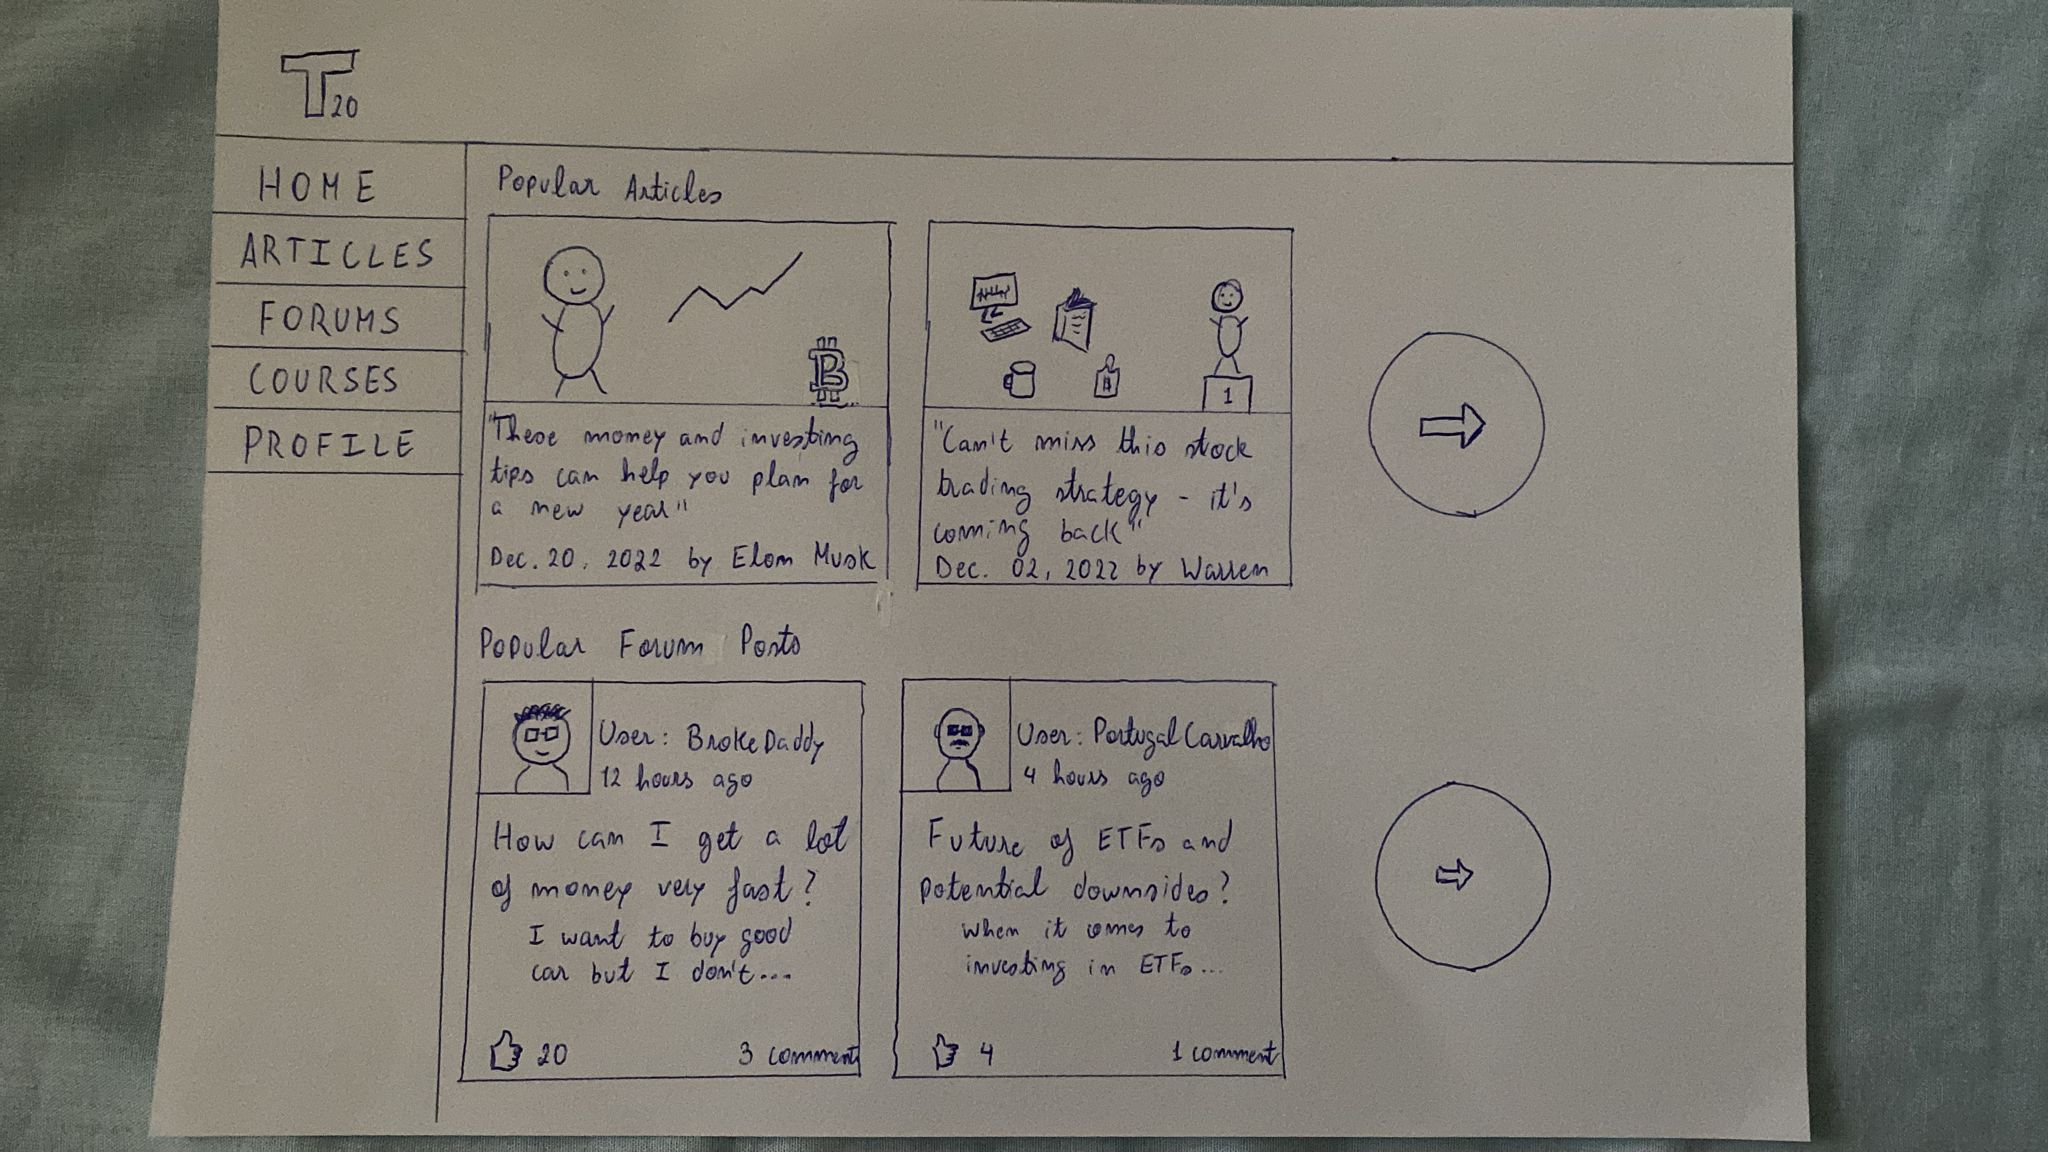 T20
HOME
ARTICLES
FORUMS
COURSES
PROFILE
Popular Articles
B
"These money and investing
tips can help you plan for
a new year"
Dec. 20, 2022 by Elon Musk
B
1
"Can't miss this stock
trading strategy - it's
coming back"
Dec. 02, 2022 by Warren
Popular Forum Posts
User: BrokeDaddy
12 hours ago
How can I get a lot
of money very fast?
I want to buy good
car but I don't...
20 3 comment
User: PortugalCarvalho
4 hours ago
Future of ETFs and
potential downsides?
When it comes to
investing in ETFs...
4 1 comment